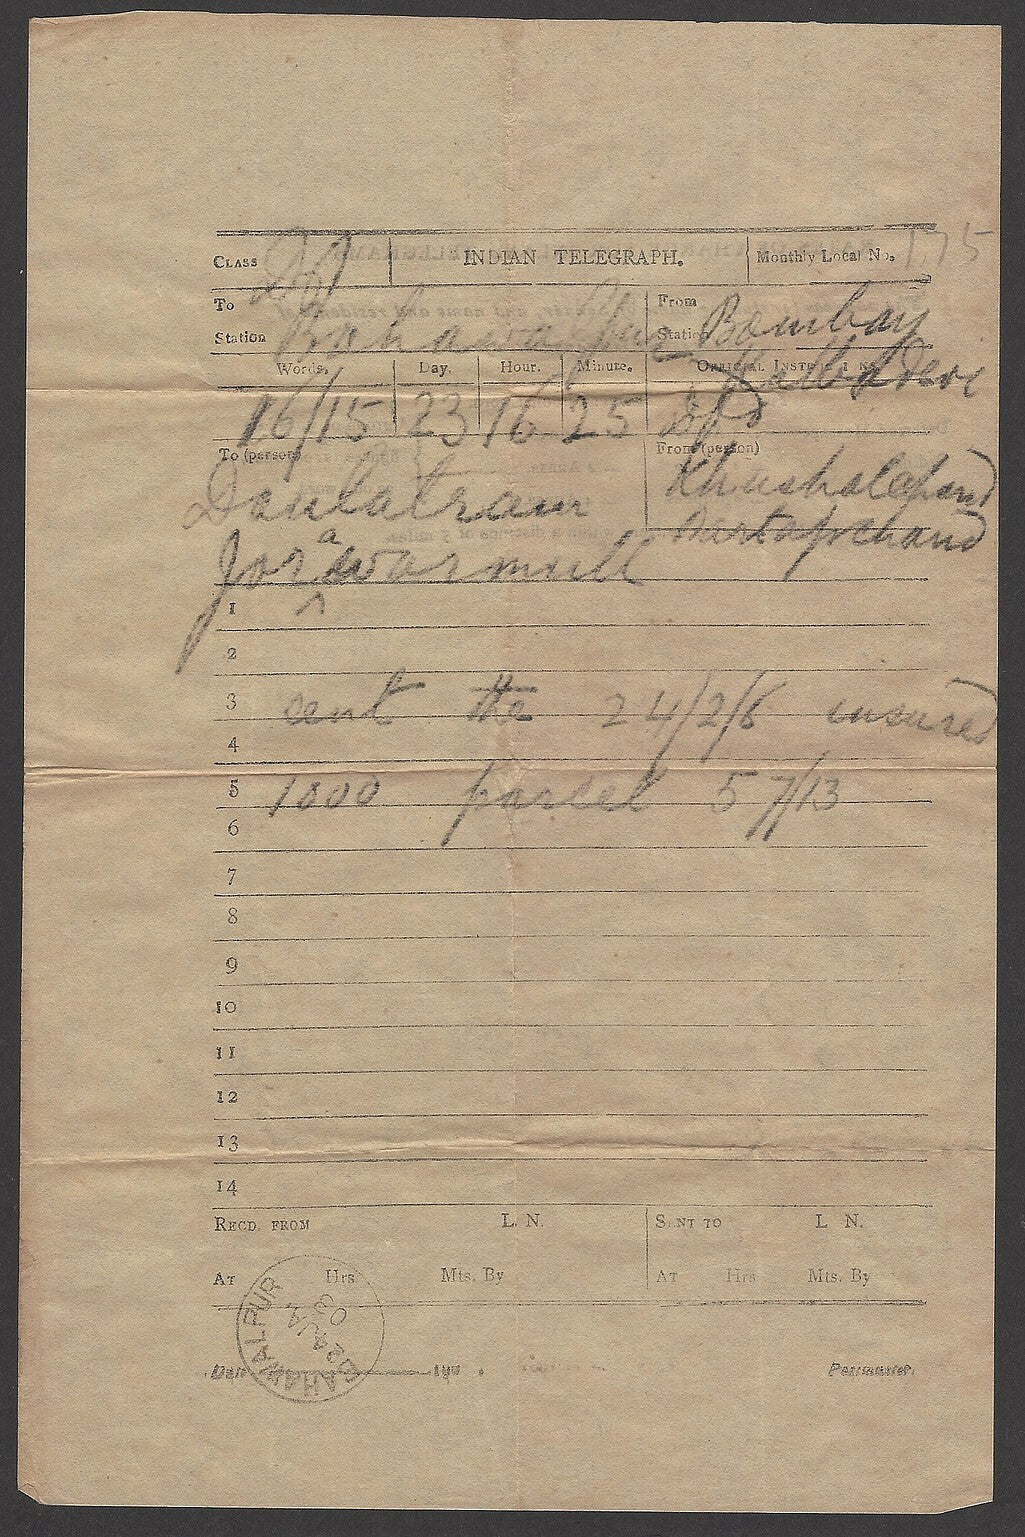 CLASS INDIAN TELEGRAPH. Monthly Local No. 175
To From
Station Bahawalpur Station Bombay
Kalbadevi
Words. Day. Hour. Minute. OFFICIAL INST
16/15 23 16 25
To (person) From (person)
Daulatram Khushalchand
Jorawarmull Partapchand
1
2
3 sent the 24/2/6 insured
4
5 1000 parcel 57/13
6
7
8
9
10
11
12
13
14
RECD. FROM L. N. SENT TO L N.
AT Hrs Mts. By AT Hrs Mts. By
BAHAWALPUR
Date 190 . Postmaster.